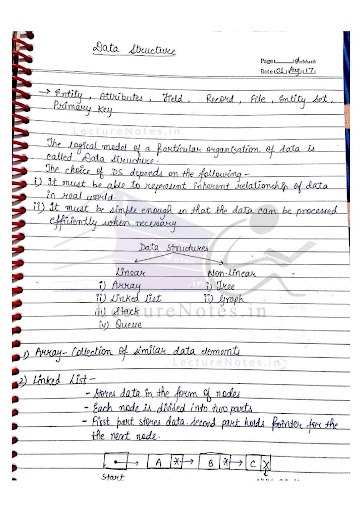 Data Structure
Page:
Date: 01 Aug 17
→ Entity, Attributes, Field, Record, File, Entity Set,
Primary Key
LectureNotes.in
The logical model of a Particular organisation of data is
called Data Structure.
The choice of DS depends on the following -
i) It must be able to represent inherent relationship of data
in real world.
ii) It must be simple enough so that the data can be processed
efficiently when necessary
Data Structures
Linear Non-Linear
i) Array i) Tree
ii) Linked List ii) Graph
iii) Stack
iv) Queue
LectureNotes.in
1) Array - Collection of similar data elements
LectureNotes.in
2) Linked List -
- Stores data in the form of nodes
- Each node is divided into two parts
- First part stores data. second part holds pointer for the
the next node.
A X B X C X
Start